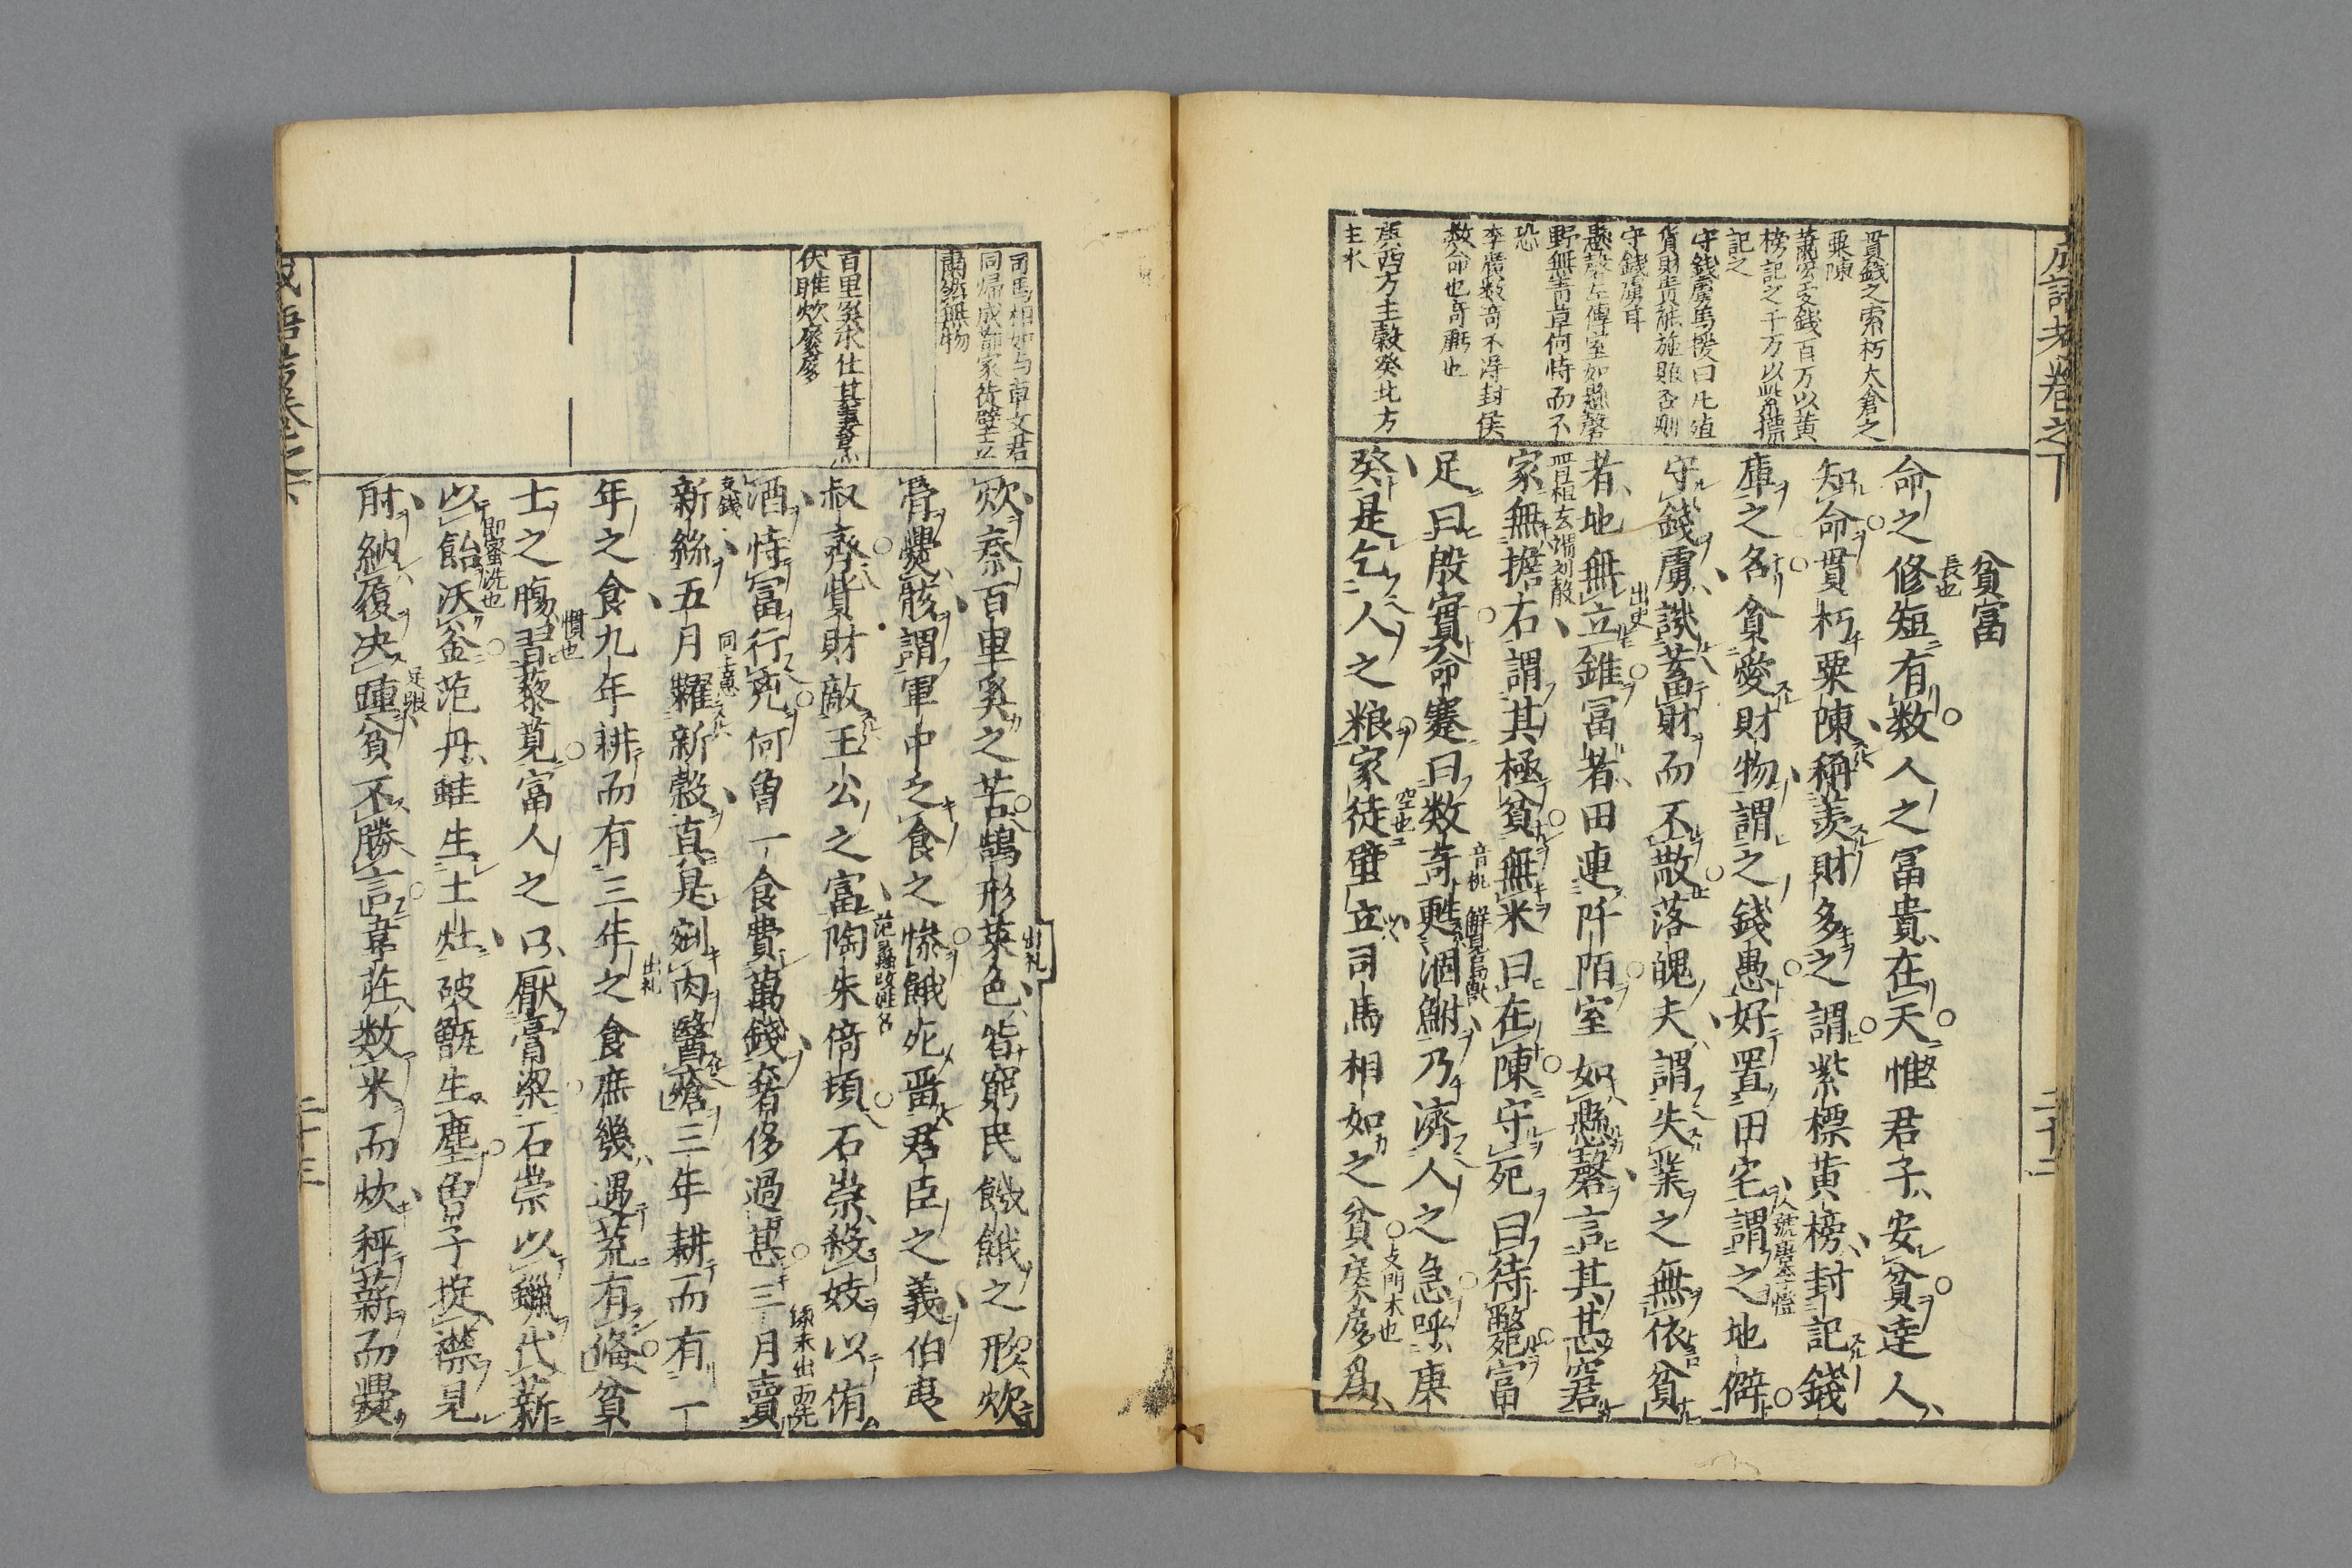 成語考卷之下
二十二
貫錢之索朽大倉之
粟陳
蕭宏愛錢百万以黄
榜記之千万以紫標
記之
守錢虜馬援曰凡殖
貨財貴能施賑否則
守錢虜耳
懸磬左傳室如懸磬
野無青草何恃而不
恐
李廣数奇不得封侯
数命也奇虧也
庚西方主穀癸北方
主水
貧富
命之修短有数人之冨貴在天惟君子安貧達人
長也
知命貫朽粟陳稱羨財多之謂紫標黄榜封記錢
庫之名貪愛財物謂之錢愚好置田宅謂之地僻
守錢虜譏蓄財而不散落魄夫謂失業之無依貧
者地無立錐冨者田連阡陌室如懸磬言其甚窘
出史
家無擔石謂其極貧無米曰在陳守死曰待斃富
足曰殷實命蹇曰数奇甦涸鮒乃濟人之急呼庚
癸是乞人之粮家徒壁立司馬相如之貧扊扅爲
空也
司馬相如与卓文君
同帰成都家徒壁立
蕭然無物
百里奚求仕其妻烹
伏雌炊扊扅
炊秦百里奚之苦鵠形菜色皆窮民餓餓之形炊
出礼
骨爨骸謂軍中乏食之惨餓死晋君臣之義伯夷
叔齊貲財敵王公之富陶朱倚頓石崇殺妓以侑
酒恃冨行兇何曽一食費萬錢奢侈過甚三月賣
新絲五月糶新穀真是剜肉醫瘡三年耕而有一
同上意
年之食九年耕而有三年之食庶幾遇荒有備貧
出礼
士之腸習藜莧富人之口厭膏梁石崇以蠟代薪
慣也
以飴沃釜范丹蛙生土灶破甑生塵曽子捉襟見
即蜜洗也
肘納履决踵貧不勝言韋莊数米而炊秤薪而爨
足跟
成語考卷之下
二十三